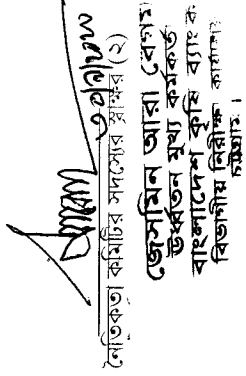 নৈতিকতা কমিটির সদস্যের স্বাক্ষর (২)
জেসমিন আরা বেগম
উর্ধ্বতন মুখ্য কর্মকর্তা
বাংলাদেশ কৃষি ব্যাংক
বিভাগীয় নিরীক্ষা কার্যালয়
চট্টগ্রাম।